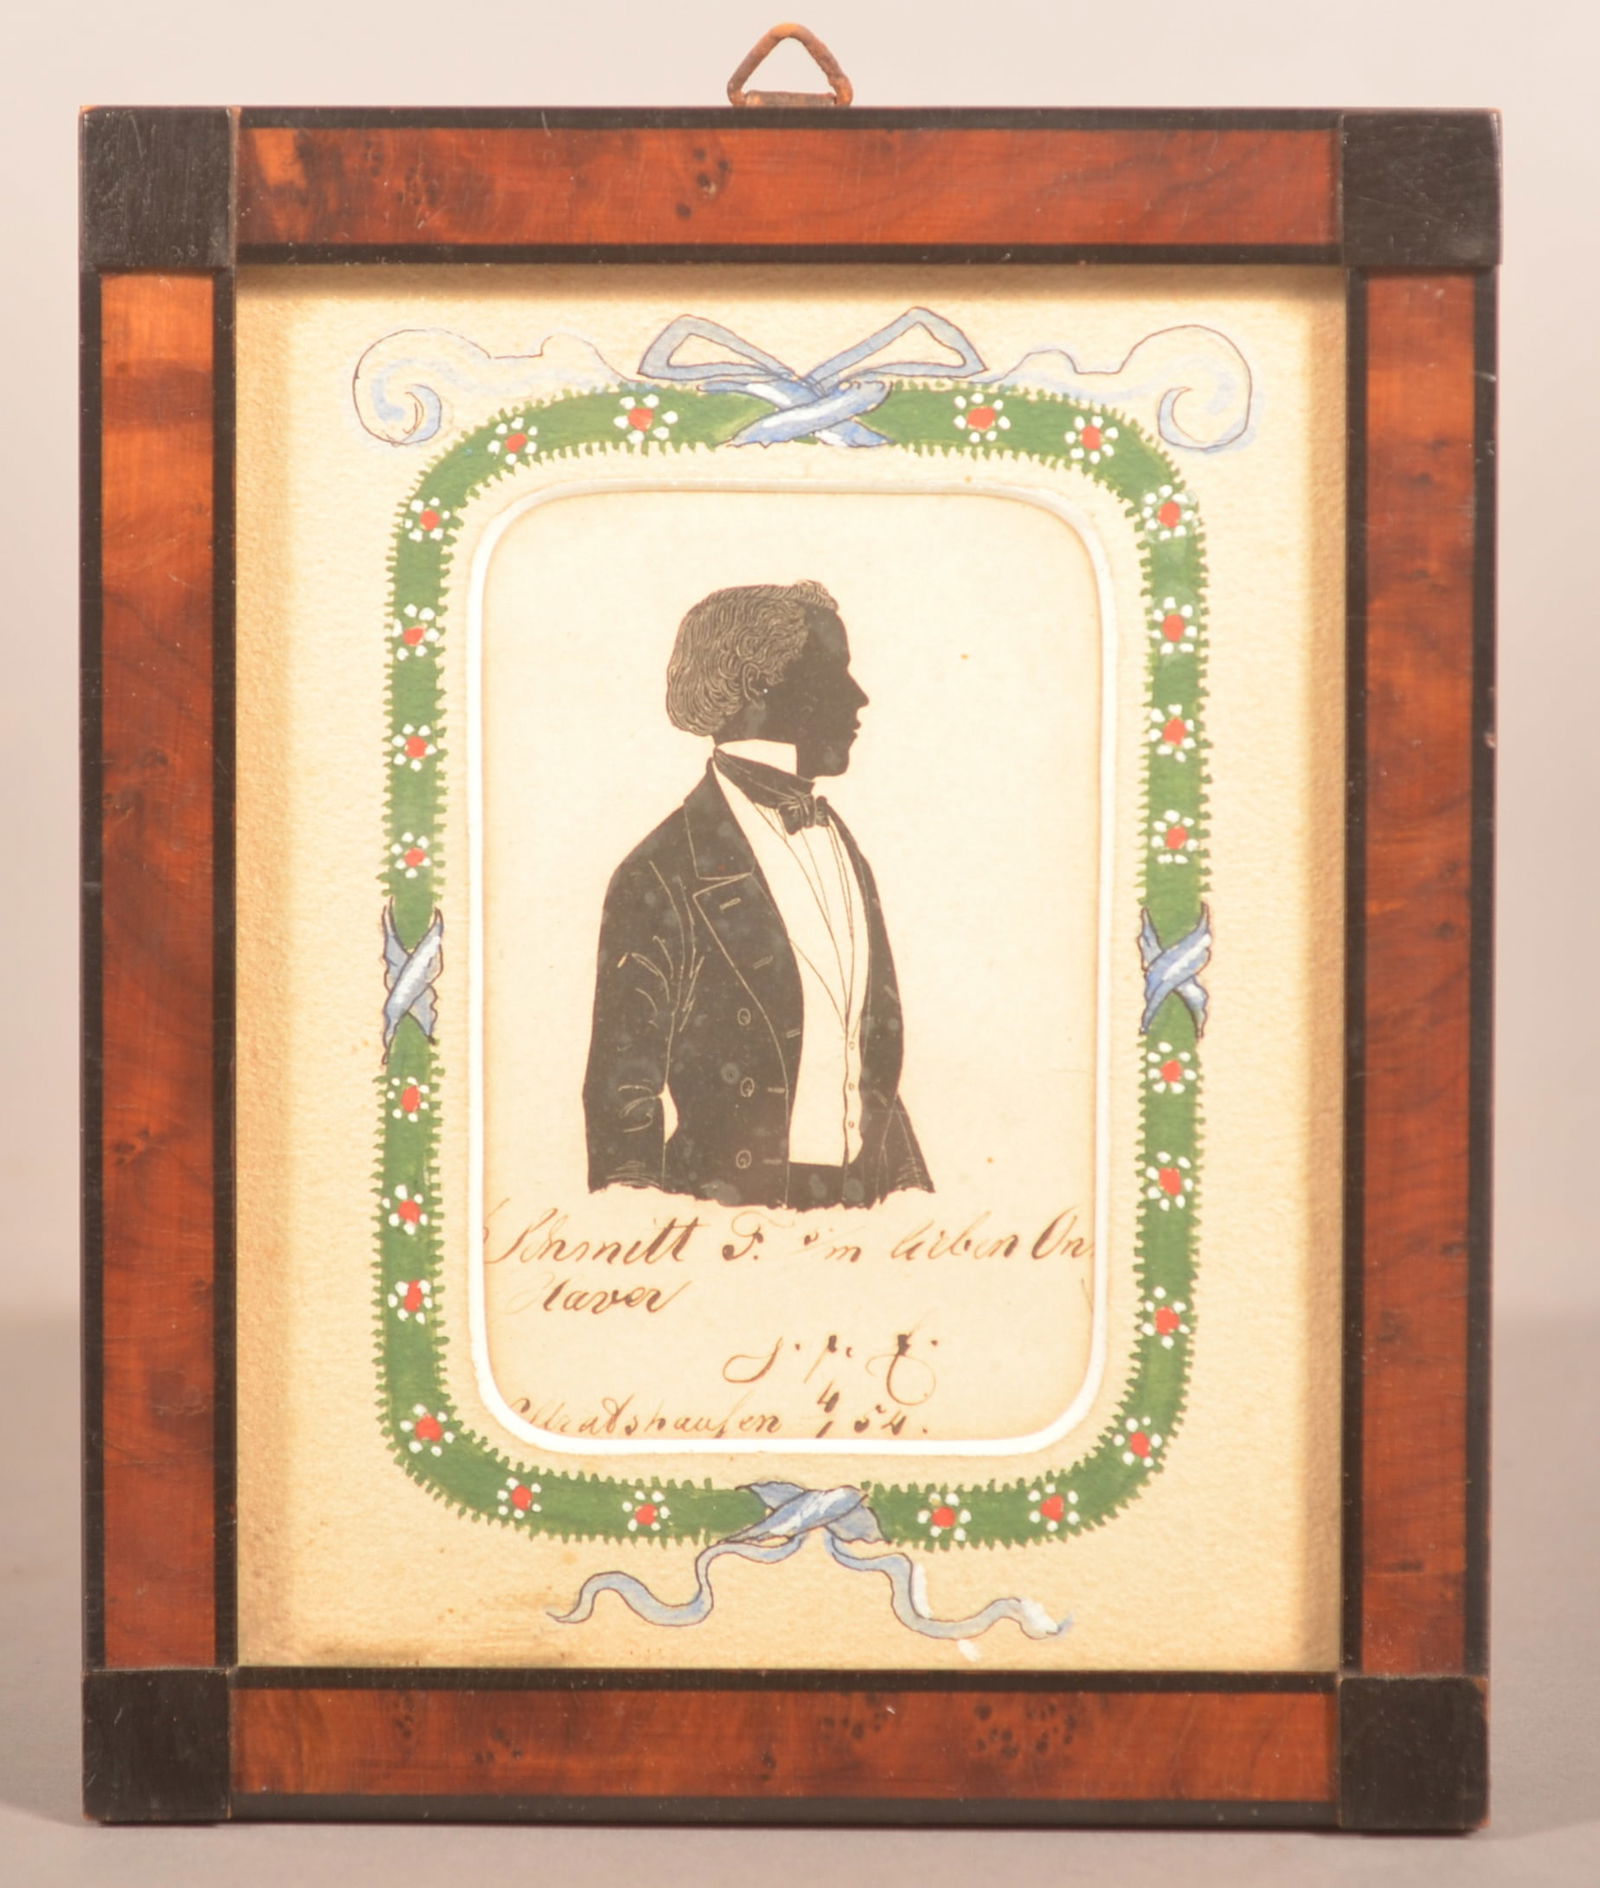 Schmitt F. s/m lieben On
Xaver
s. p. t.
Ebratshausen 4/54.